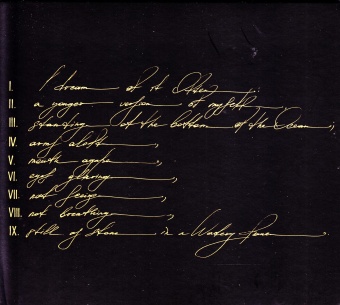 I. I dream of it often:
II. a younger version of myself,
III. standing at the bottom of the Ocean;
IV. arms aloft,
V. mouth agape,
VI. eyes glaring,
VII. not seeing,
VIII. not breathing,
IX. still as stone in a Watery fane.